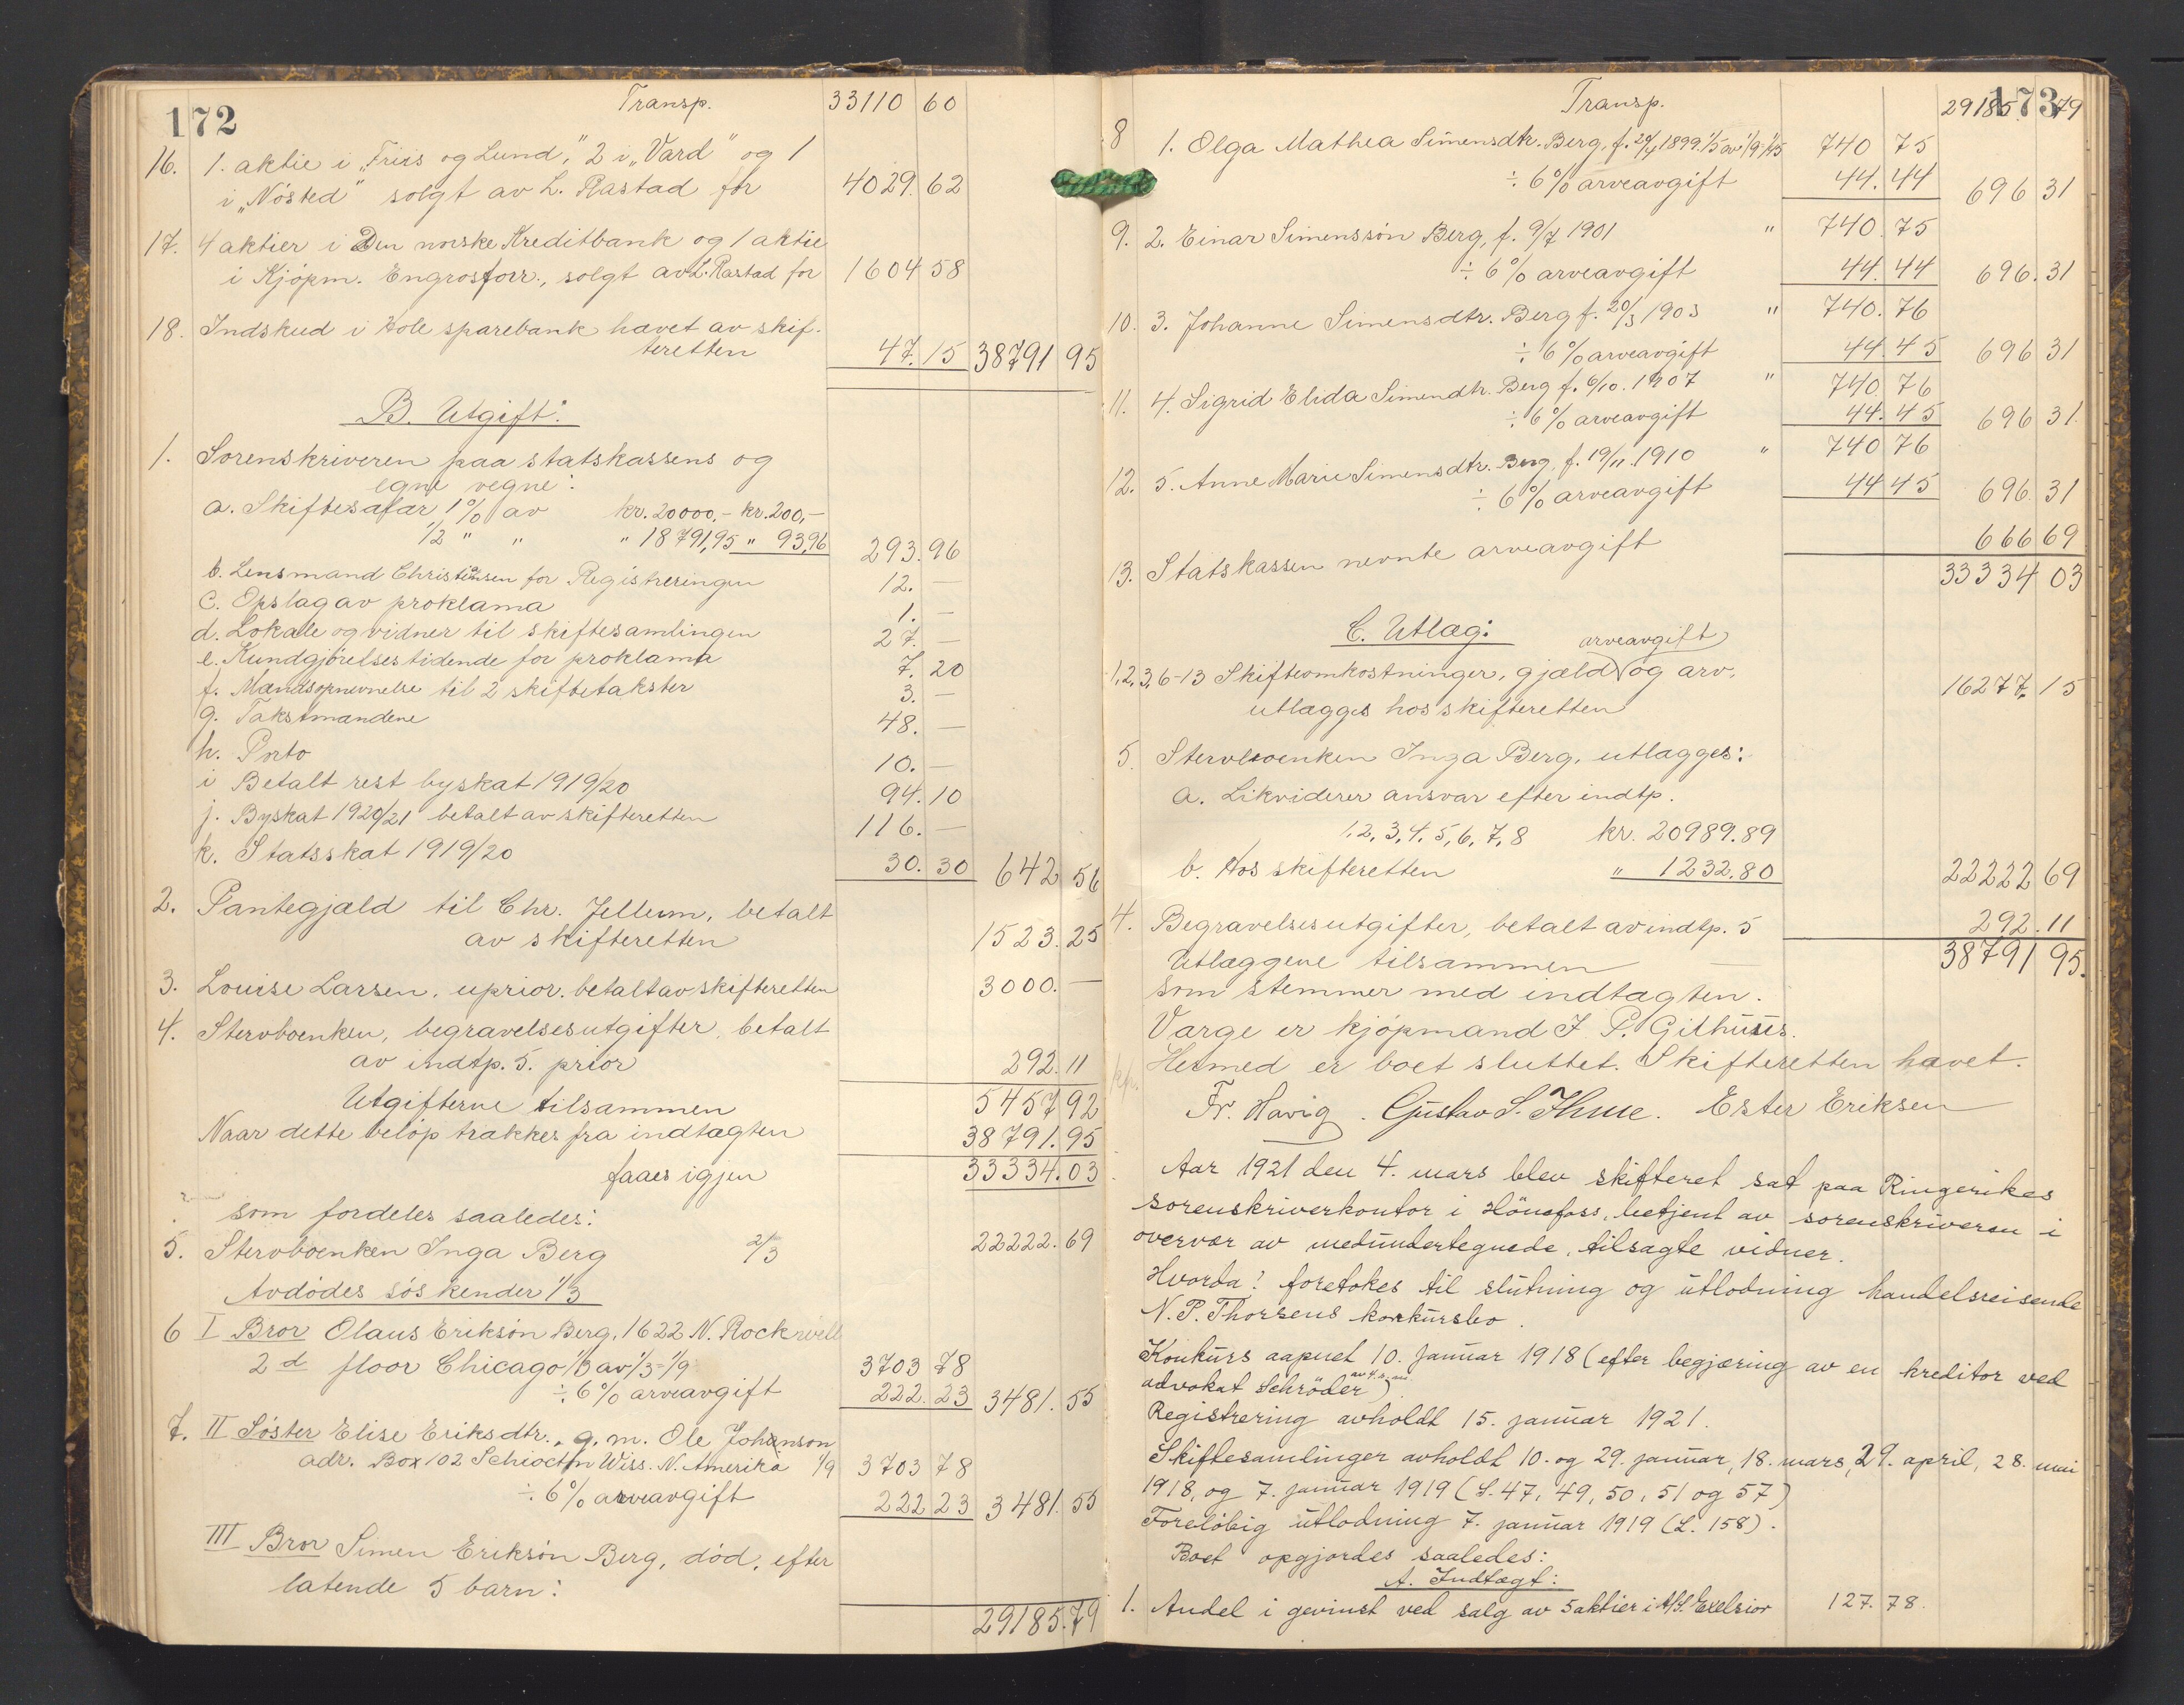 172
Transp. 33110 60
16. 1. aktie i „Friis og Lund," 2 i „Vard" og 1
i „Nøsted" solgt av L. Rastad for 4029. 62
17. 4 aktier i Den norske Kreditbank og 1 aktie
i Kjøpm. Engrosforr., solgt av L. Rastad for 1604 58
18. Indskud i Hole sparebank hævet av skif-
teretten 47. 15 38791 95
B. Utgift:
1. Sorenskriveren paa statskassens og
egne vegne:
a. Skiftesafär 1% av kr. 20000,- kr. 200,-
1/2 " " " 18791,95 " 93,96 293. 96
b. Lensmand Christiansen for Registreringen 12. —
c. Opslag av proklama 1. —
d. Lokale og vidner til skiftesamlingen 27. —
e. Kundgjørelsestidende for proklama 7. 20
f. Mandsopnevnelse til 2 skiftetakster 3. —
g. Takstmændene 48. —
h. Porto 10. —
i Betalt rest byskat 1919/20 94. 10
j. Byskat 1920/21 betalt av skifteretten 116. —
k. Statsskat 1919/20 30. 30 642 56
2. Pantegjæld til Chr. Jellum, betalt
av skifteretten 1523. 25
3. Louise Larsen, uprior. betalt av skifteretten 3000. —
4. Stervboenken, begravelsesutgifter, betalt
av indtp. 5. prior 292. 11
Utgifterne tilsammen 5457 92
Naar dette beløp trækkes fra indtægten 38791. 95
faaes igjen 33334. 03
som fordeles saaledes:
5. Stervboenken Inga Berg 2/3 22222. 69
Avdødes søskender 1/3
6 I Bror Olaus Eriksøn Berg, 1622 N. Rockwell
2d floor Chicago 1/3 av 1/3 = 1/9 3703 78
÷ 6% arveavgift 222. 23 3481. 55
7. II Søster Elise Eriksdtr., g. m. Ole Johanson
adr. Box 102 Schiocton Wiss. N. Amerika 1/9 3703 78
÷ 6% arveavgift 222 23 3481. 55
III Bror Simen Eriksøn Berg, död, efter
latende 5 barn:
29185. 79
173
Transp. 29185. 79
8 1. Olga Mathea Simensdtr. Berg, f. 29/4 1899. 1/5 av 1/9 = 1/45 740 75
÷ 6% arveavgift 44. 44 696 31
9. 2. Einar Simenssøn Berg, f. 9/7 1901 " 740. 75
÷ 6% arveavgift 44. 44 696. 31
10. 3. Johanne Simensdtr. Berg f. 20/3 1903 " 740. 76
÷ 6% arveavgift 44. 45 696 31
11. 4. Sigrid Elida Simendtr. Berg f. 6/10. 1907 " 740 76
÷ 6% arveavgift 44. 45 696 31
12. 5. Anne Marie Simensdtr. Berg, f. 19/11. 1910 " 740 76
÷ 6% arveavgift 44 45 696. 31
13. Statskassen nevnte arveavgift 666 69
33334 03
C. Utlæg:
1, 2, 3, 6-13 Skifteomkostninger, gjæld arveavgift og arv,
utlægges hos skifteretten 16277. 15
5. Stervboenken Inga Berg, utlægges:
a. Likviderer ansvar efter indtp.
1, 2, 3, 4, 5, 6, 7, 8 kr. 20989.89
b. Hos skifteretten " 1232.80 22222 69
4. Begravelsesutgifter, betalt av indtp. 5 292. 11
Utlæggene tilsammen 38791 95.
som stemmer med indtægten.
Værge er kjøpmand J. P. Gilhuus.
Hermed er boet sluttet. Skifteretten hævet.
Fr. Havig. Gustav S. Thue. Ester Eriksen
Aar 1921 den 4. mars blev skifteret sat paa Ringerikes
sorenskriverkontor i Hönefoss, betjent av sorenskriveren i
overvær av medundertegnede, tilsagte vidner.
Hvorda! foretokes til slutning og utlodning handelsreisende
N. P. Thorsens konkursbo.
Konkurs aapnet 10. januar 1918 (efter begjæring av en kreditor ved
advokat Schröder)
Registrering avholdt 15. januar 1921.
Skiftesamlinger avholdt 10. og 29. januar, 18. mars, 29. april, 28. mai
1918, og 7. januar 1919 (S. 47, 49, 50, 51 og 57)
Foreløbig utlodning 7. januar 1919 (L. 158).
Boet opgjordes saaledes:
A. Indtægt:
1. Andel i gevinst ved salg av 5 aktier i A/S. Exelsior 127. 78.